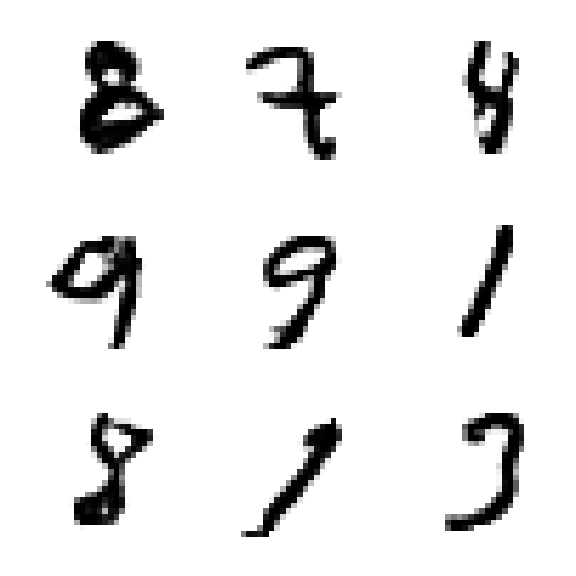 8 7 8
9 9 1
8 1 3